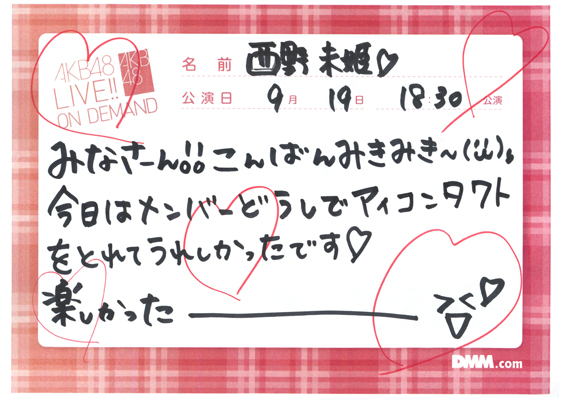 AKB48
LIVE!!
ON DEMAND
AKB
48
名前 西野未姫♡
公演日 9月 19日 18:30 公演
みなさーん!!こんばんみきみき〜
今日はメンバーどうしでアイコンタクト
をとれてうれしかったです♡
楽しかった―――
DMM.com